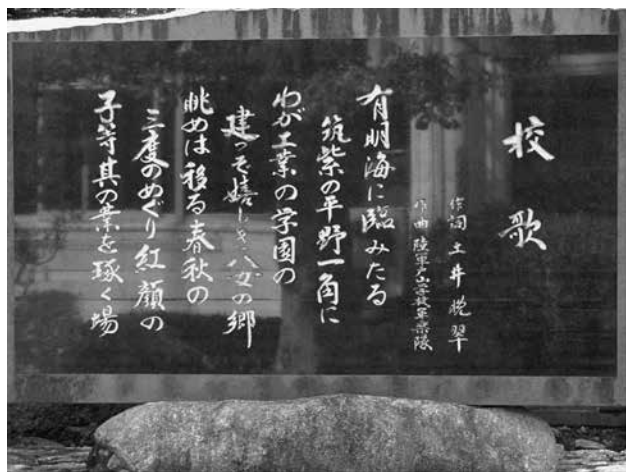 校歌
作詞 土井晩翠
作曲 陸軍戸山学校軍楽隊
有明海に臨みたる
筑紫の平野一角に
わが工業の学園の
建つぞ嬉しき八女の郷
眺めは移る春秋の
三度のめぐり紅顔の
子等其の業を琢く場